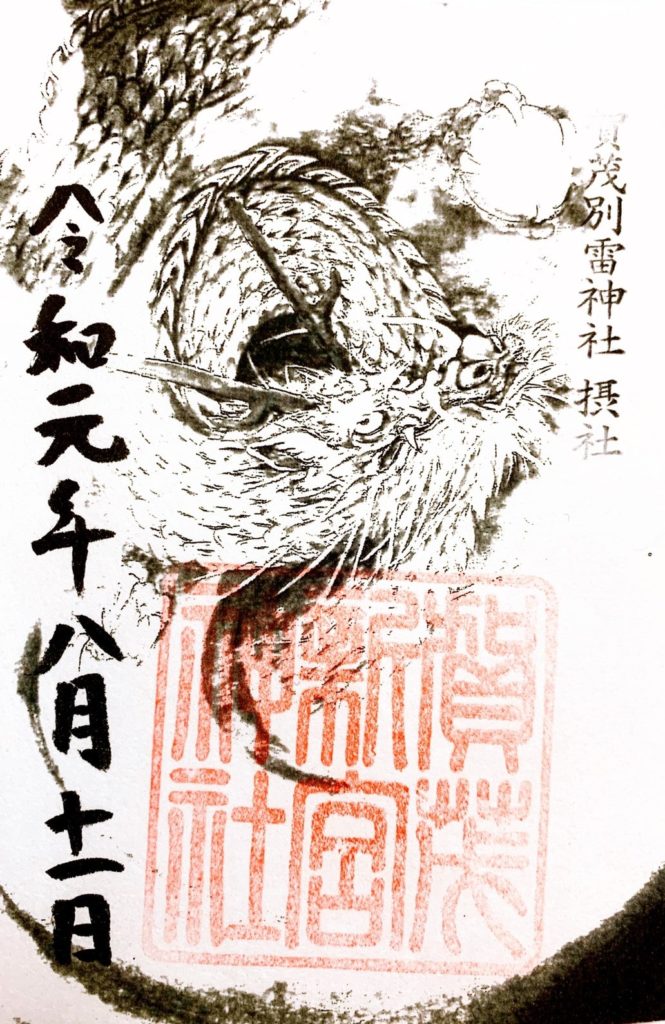 賀茂別雷神社 摂社
賀茂
新宮
神社
令和元年八月十一日